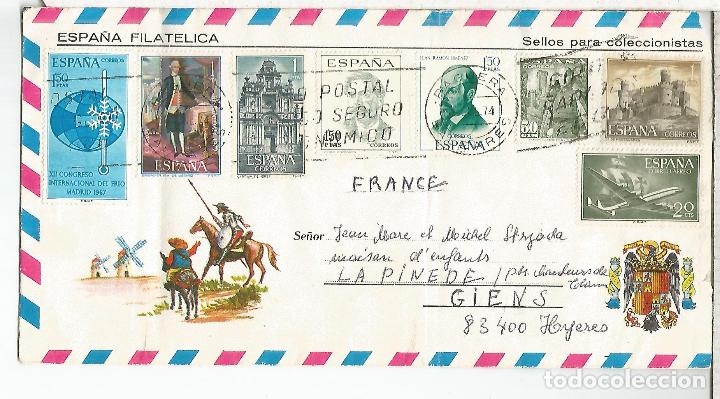 ESPAÑA FILATELICA
Sellos para coleccionistas
ESPAÑA
1'50 PTAS
CORREOS
XII CONGRESO
INTERNACIONAL DEL FRIO
MADRID 1967
ESPAÑA
1
ESPAÑA
CORREOS
ESPAÑA
1'50 PTAS
CORREOS
POSTAL
SEGURO
JUAN RAMON JIMENEZ
1'50 PTAS
CORREOS
ESPAÑA
14
1
ESPAÑA
CORREOS
ESPAÑA
CORREO AEREO
20 CTS
FRANCE
Señor Jean Marc et Michel
maison d'enfants
LA PINEDE /
GIENS
83400 Hyeres
todocoleccion.net